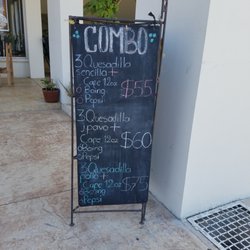 COMBO
3 Quesadilla
sencilla +
Cafe 12oz
o Boing
o Pepsi
$55
3 Quesadilla
pavo +
Cafe 12oz
o Boing
o Pepsi
$60
3 Quesadilla
Cafe 12oz
o Boing
o Pepsi
$75